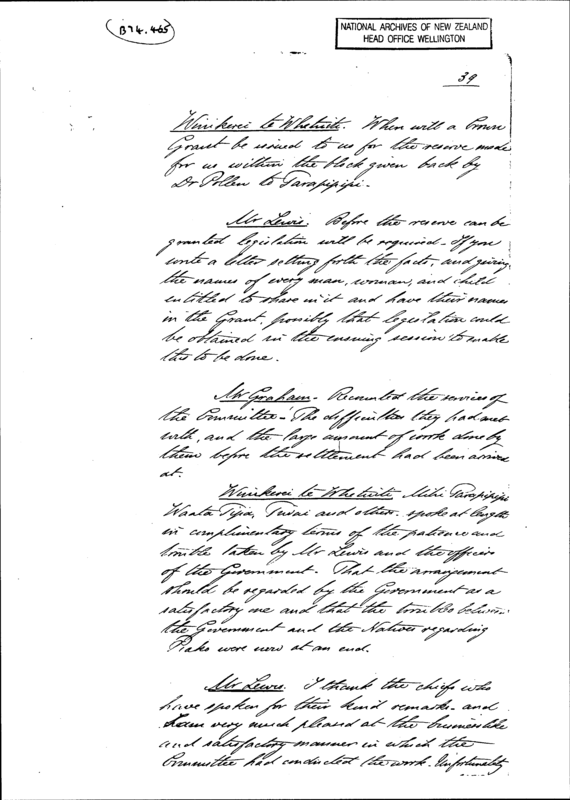 B74.465
NATIONAL ARCHIVES OF NEW ZEALAND
HEAD OFFICE WELLINGTON
39
Winikerei te Whetuiti. When will a Crown
Grant be issued to us for the reserve made
for us within the block given back by
Dr Pollen to Tarapipipi.
Mr Lewis. Before the reserve can be
granted legislation will be required - If you
write a letter setting forth the facts, and giving
the names of every man, woman, and child
entitled to share in it and have their names
in the Grant, possibly that legislation could
be obtained in the ensuing session to enable
this to be done.
Mr Graham - Recounted the services of
the Committee - The difficulties they had met
with, and the large amount of work done by
them before the settlement had been arrived
at.
Winikerei te Whetuiti, Mihi Tarapipipi
Waata Tipa, and others spoke at length
in complimentary terms of the patience and
trouble taken by Mr Lewis and the officers
of the Government. That the arrangement
should be regarded by the Government as a
satisfactory one and that the troubles between
the Government and the Natives regarding
Piako were now at an end.
Mr Lewis. I thank the chiefs who
have spoken for their kind remarks - and
I am very much pleased at the businesslike
and satisfactory manner in which the
Committee had conducted the work. Unfortunately